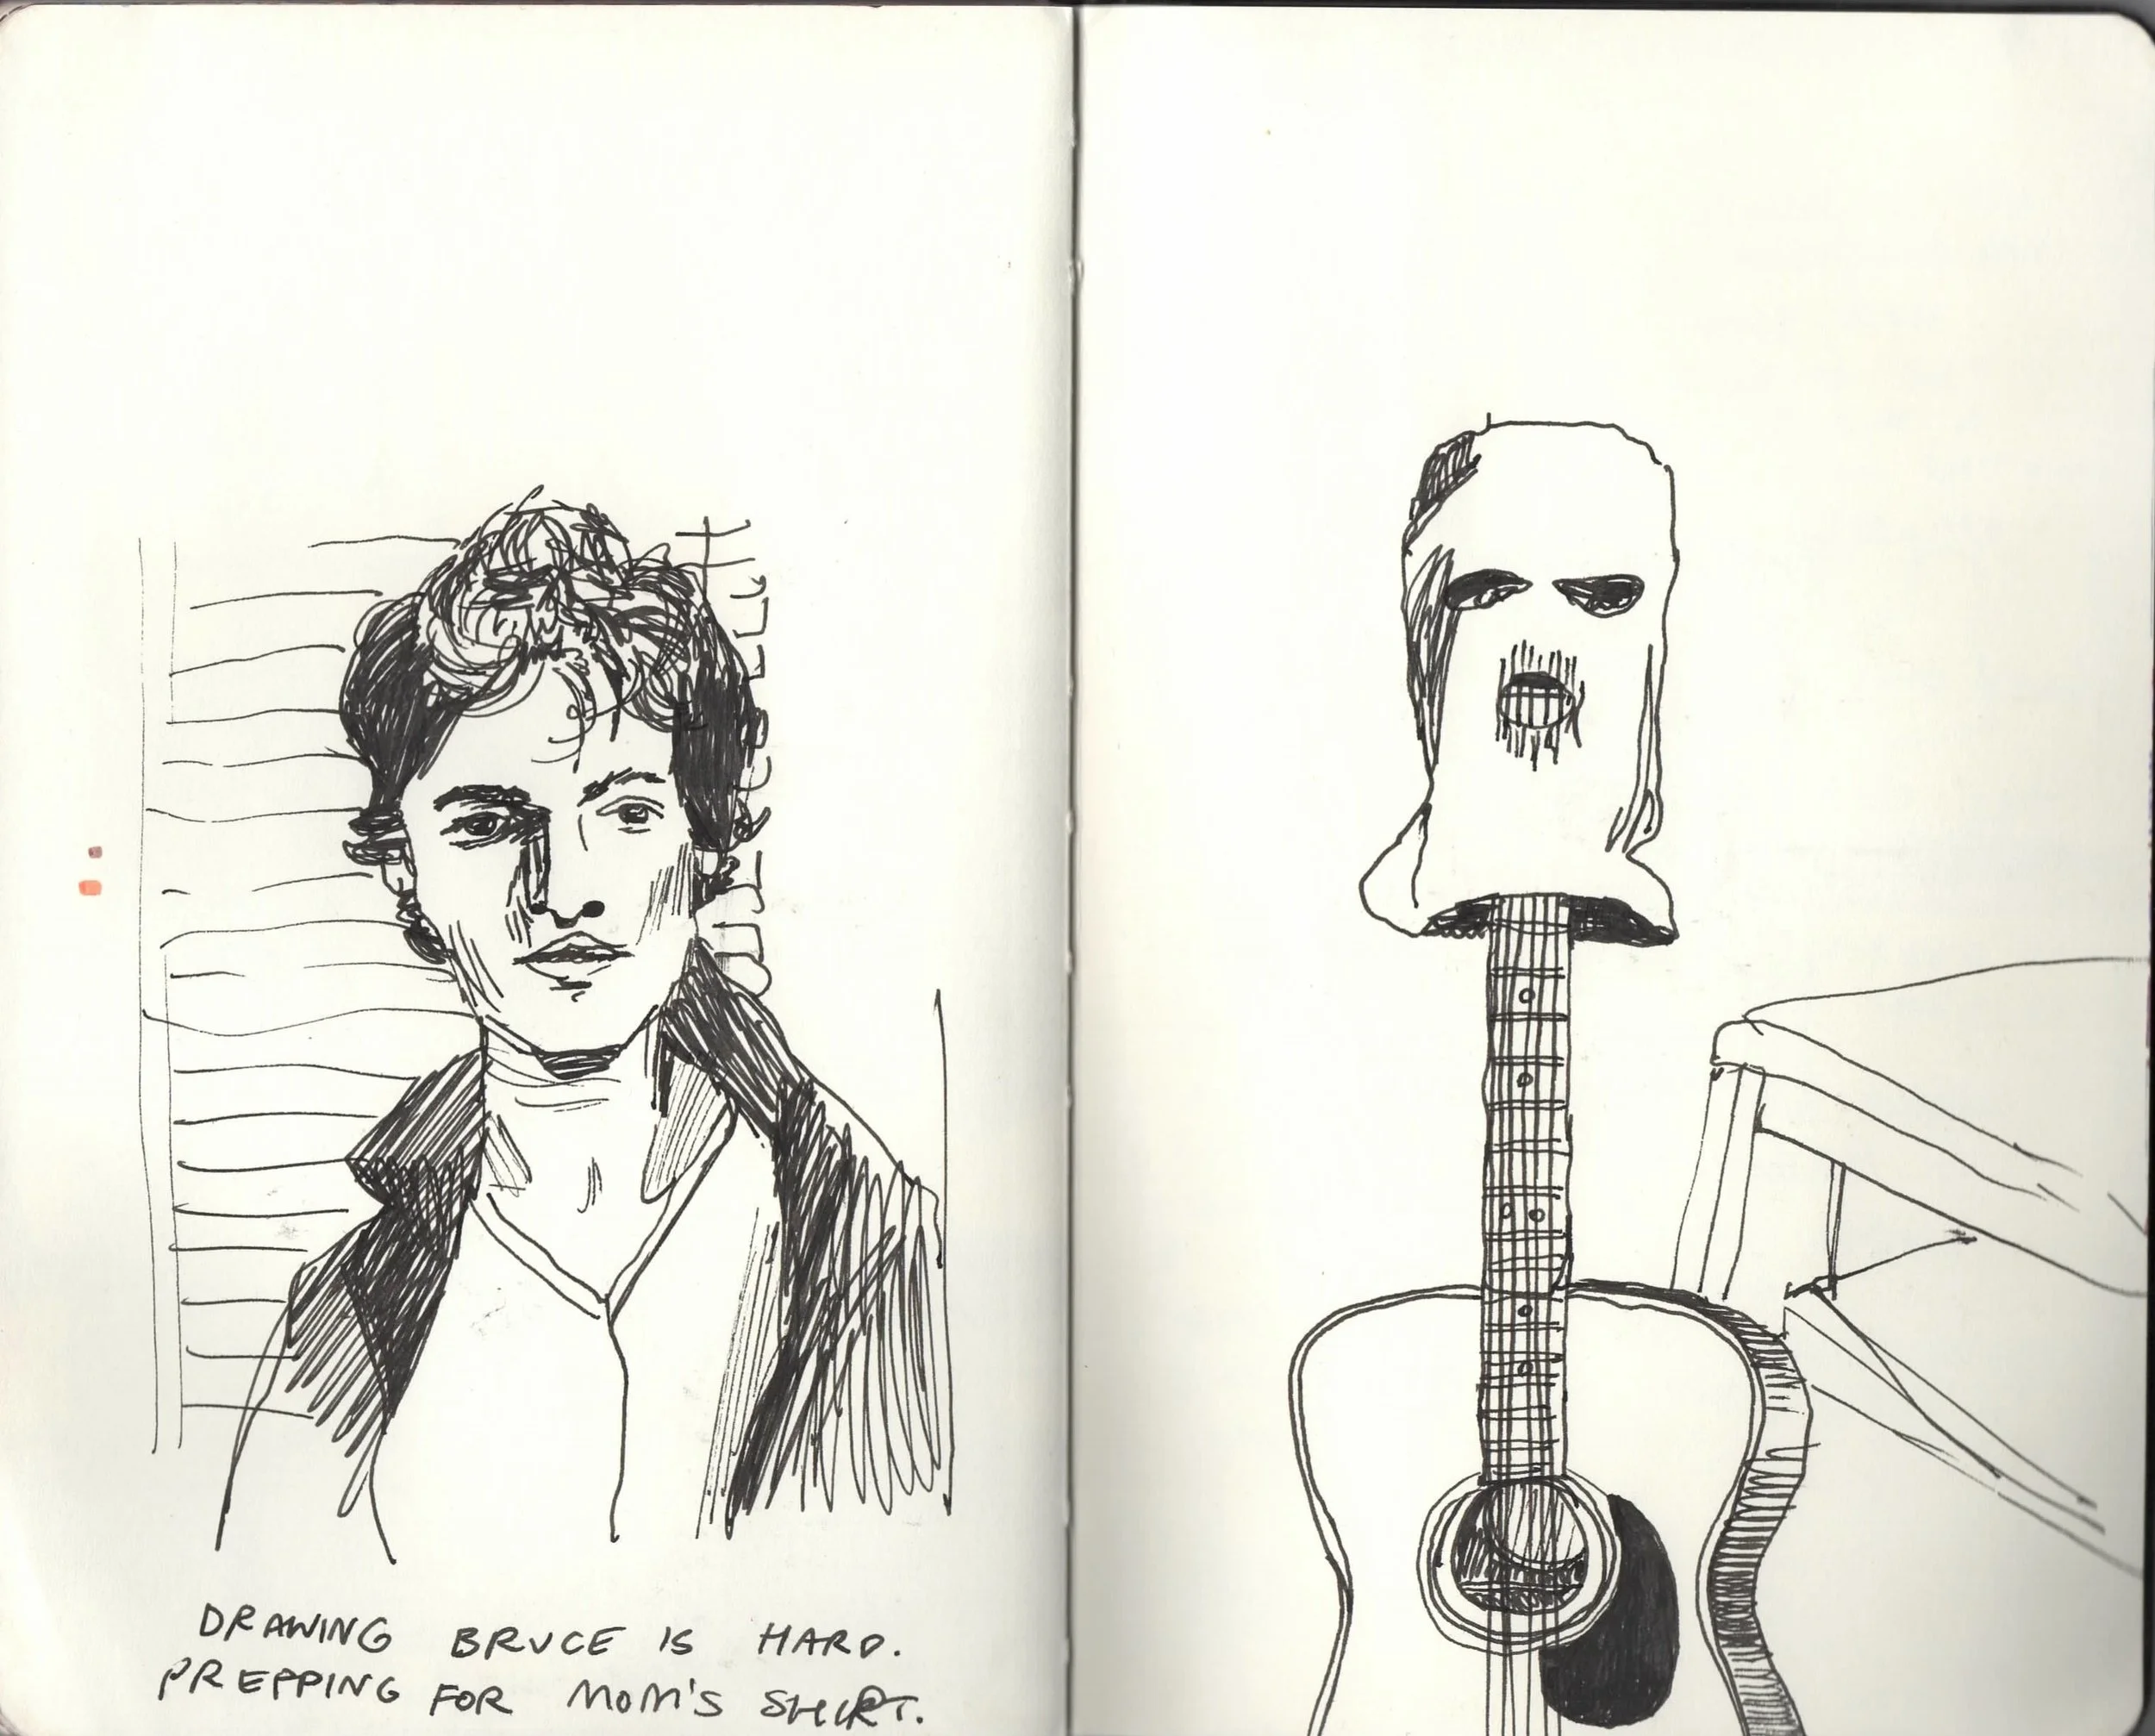 DRAWING BRUCE IS HARD.
PREPPING FOR MOM'S SHIRT.